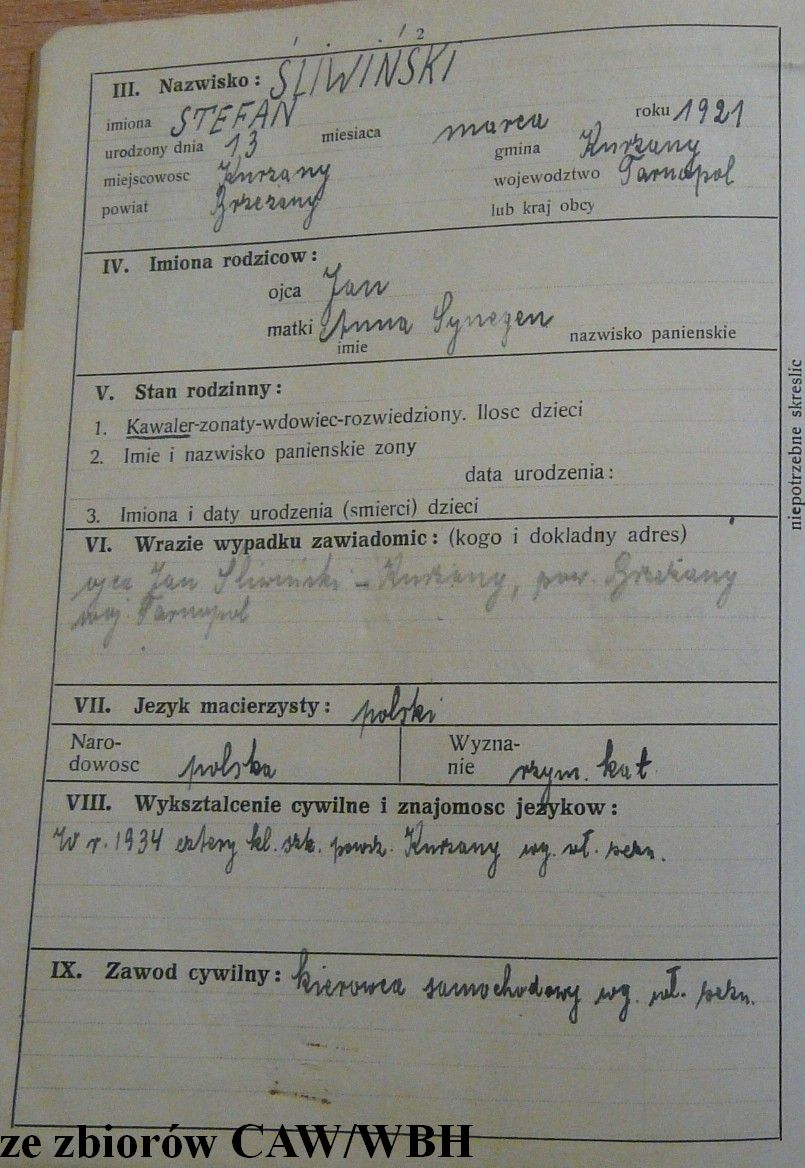 2
III. Nazwisko: ŚLIWIŃSKI
imiona STEFAN
urodzony dnia 13 miesiaca marca roku 1921
miejscowosc Kurzany gmina Kurzany
powiat Brzeżany wojewodztwo Tarnopol
lub kraj obcy
IV. Imiona rodzicow:
ojca Jan
matki Anna Synezen
imie nazwisko panienskie
V. Stan rodzinny:
1. Kawaler-zonaty-wdowiec-rozwiedziony. Ilosc dzieci
2. Imie i nazwisko panienskie zony
data urodzenia:
3. Imiona i daty urodzenia (smierci) dzieci
niepotrzebne skreslic
VI. Wrazie wypadku zawiadomic: (kogo i dokladny adres)
ojca Jan Śliwiński - Kurzany, pow. Brzeżany
woj. Tarnopol
VII. Jezyk macierzysty: polski
Naro-
dowosc polska
Wyzna-
nie rzym. kat.
VIII. Wyksztalcenie cywilne i znajomosc jezykow:
W r. 1934 cztery kl. szk. powsz. Kurzany wg. wł. zezn.
IX. Zawod cywilny: kierowca samochodowy wg. wł. zezn.
ze zbiorów CAW/WBH